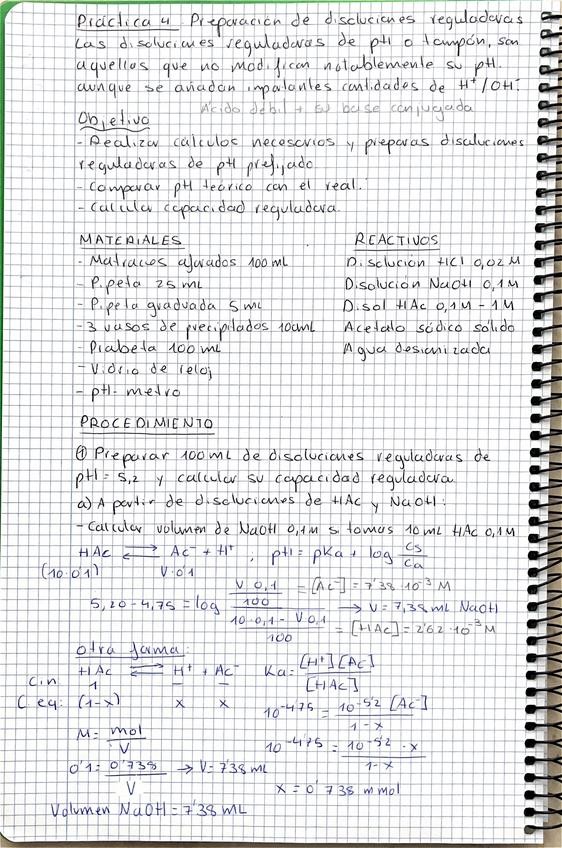 Práctica 4 Preparación de disoluciones reguladoras
Las disoluciones reguladoras de pH o tampón, son
aquellos que no modifican notablemente su pH.
aunque se añadan impotantes cantidades de H⁺/OH⁻.
Ácido débil + su base conjugada
Objetivo
- Realizar cálculos necesarios y preparas disoluciones
reguladoras de pH prefijado
- Comparar pH teórico con el real.
- Calcular capacidad reguladora.
MATERIALES
- Matraces aforados 100 mL
- Pipeta 25 mL
- Pipeta graduada 5 mL
- 3 vasos de precipitados 100mL
- Probeta 100 mL
- Vidrio de reloj
- pH-metro
REACTIVOS
Disolución HCl 0,02 M
Disolución NaOH 0,1 M
Disol HAc 0,1M - 1M
Acetato sódico sólido
Agua desionizada
PROCEDIMIENTO
① Preparar 100 mL de disoluciones reguladoras de
pH = 5,2 y calcular su capacidad reguladora
a) A partir de disoluciones de HAc y NaOH:
- Calcular volumen de NaOH 0,1M si tomas 10 mL HAc 0,1M
HAc ⇌ Ac⁻ + H⁺ ; pH = pKa + log Cs/Ca
(10·0'1) V·0'1
5,20 - 4,75 = log (V·0,1/100)/(10·0,1 - V·0,1/100) → V = 7,38 mL NaOH
= [Ac⁻] = 7'38·10⁻³ M
= [HAc] = 2'62·10⁻³ M
otra forma:
HAc ⇌ H⁺ + Ac⁻
Cin 1 — —
C eq: (1-x) x x
M = mol/V
0'1 = 0'738/V → V = 7'38 mL
Volumen NaOH = 7'38 mL
Ka = [H⁺][Ac⁻]/[HAc]
10^-4'75 = 10^-5'2 [Ac⁻]/1-x
10^-4'75 = 10^-5'2 · x/1-x
x = 0'738 mmol